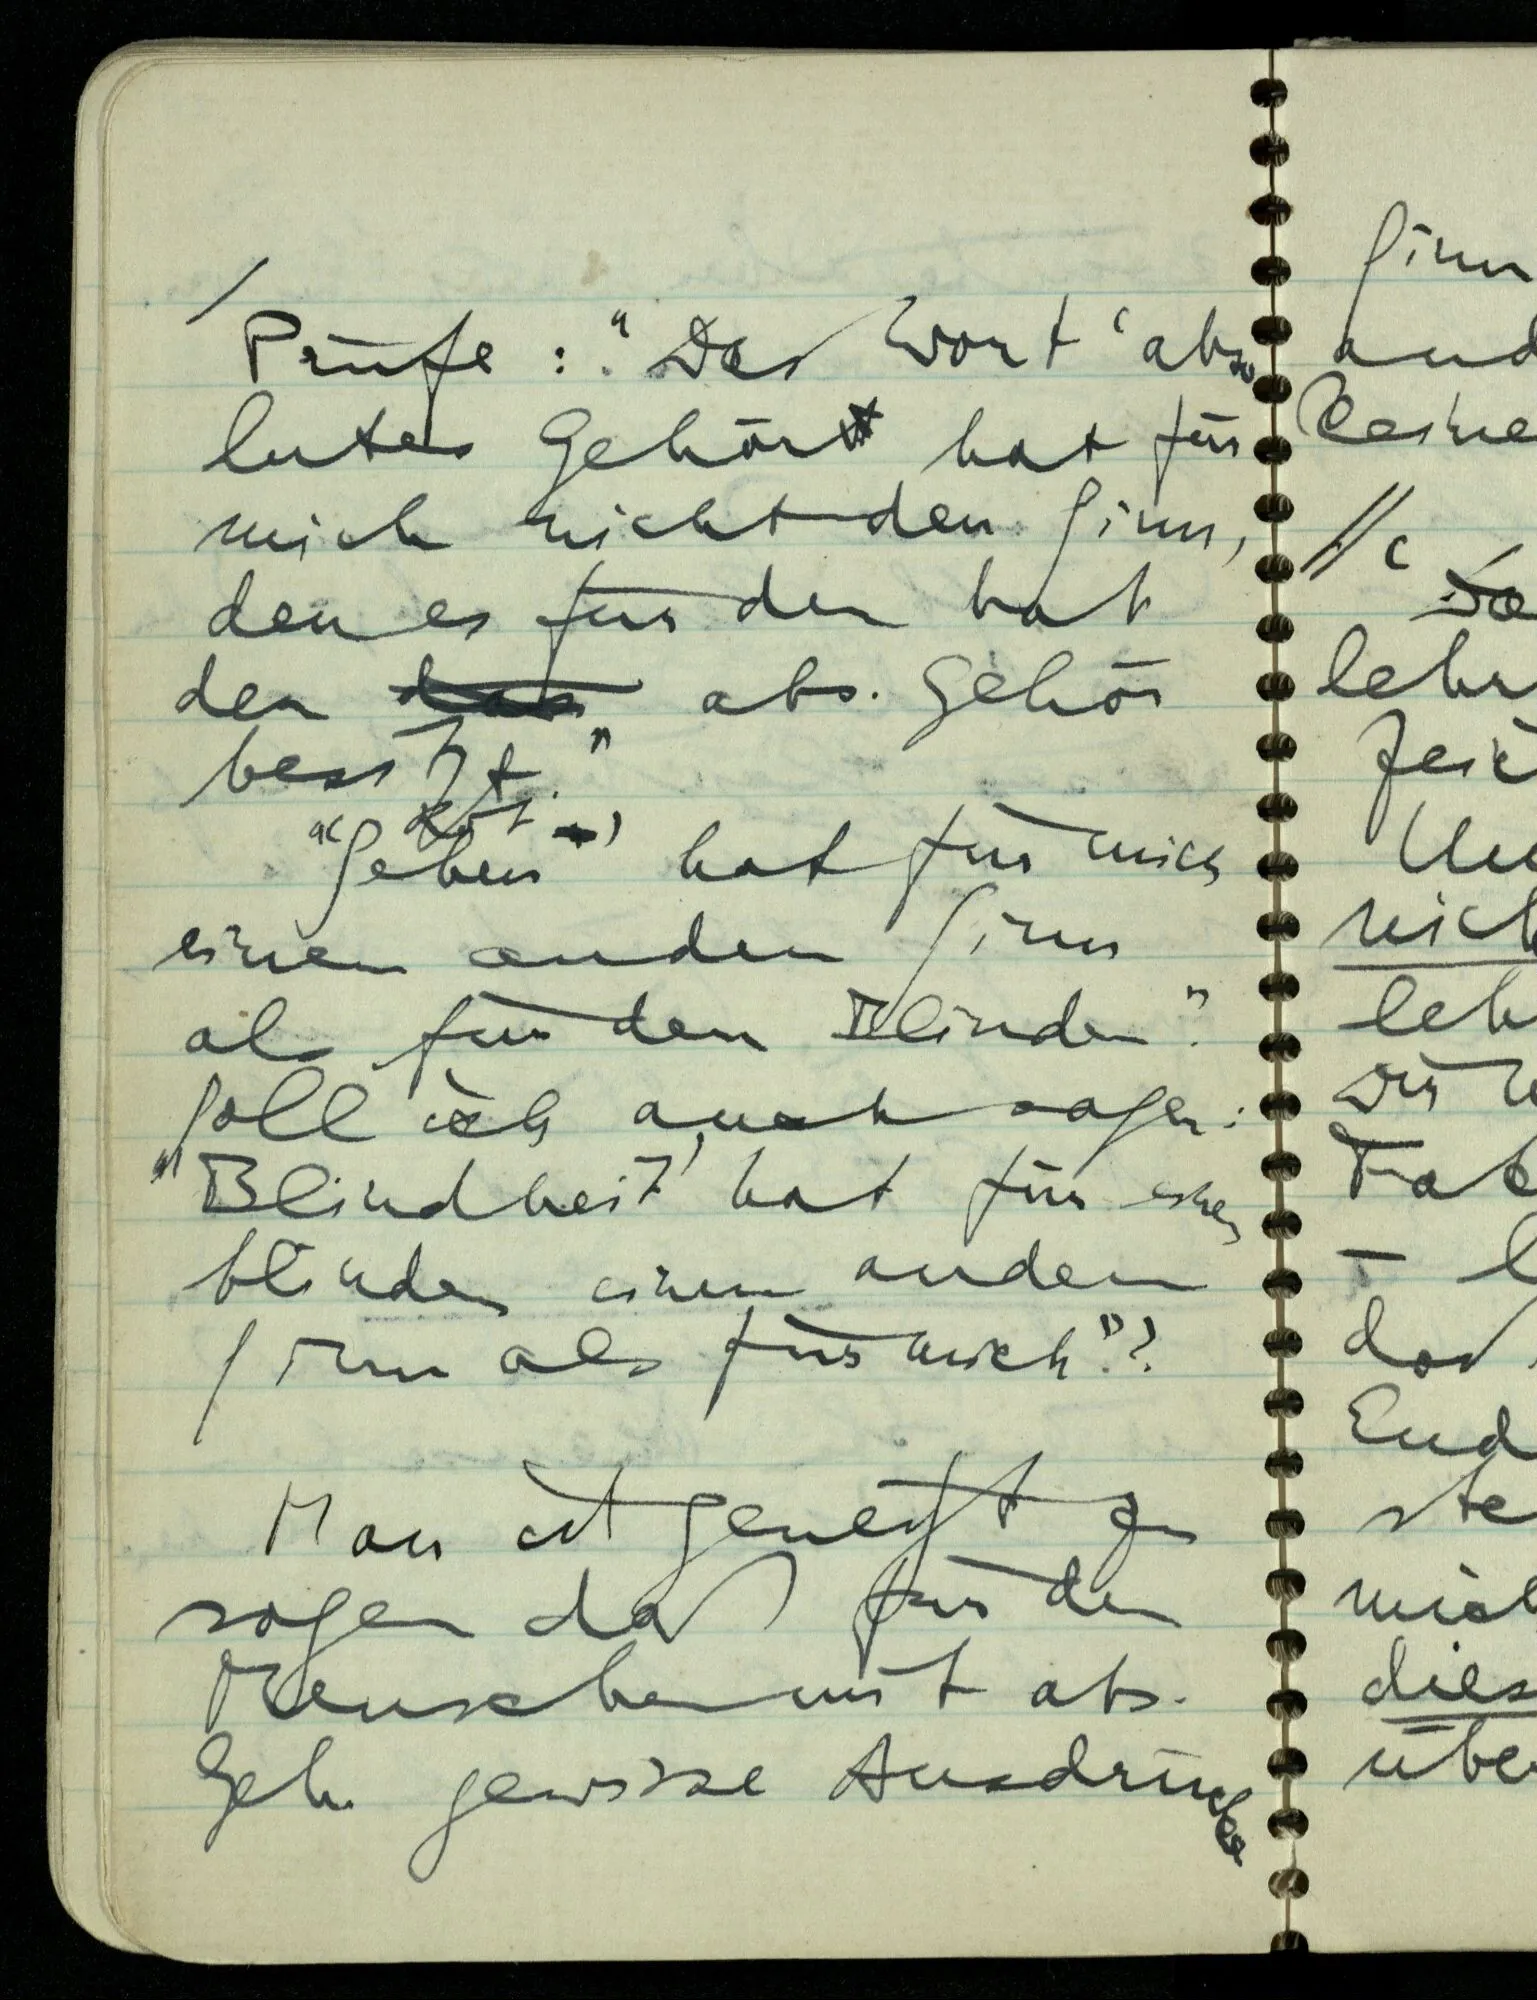 /
Prüfe : "Das Wort 'abso
lutes Gehör' hat für
mich nicht den Sinn,
den es für den hat
der das abs. Gehör
besitzt."
rot
"'Sehen' hat für mich
einen andern Sinn
als für den Blinden"?
Soll ich auch sagen:
"'Blindheit' hat für einen
blinden einen andern
Sinn als für mich"?
Man ist geneigt zu
sagen daß für den
Menschen mit abs.
Geh. gewisse Ausdrücke
Sinn
and
keine
//
lehr
Zeic
nich
leh
Wir
das
End
ste
mich
dies
über